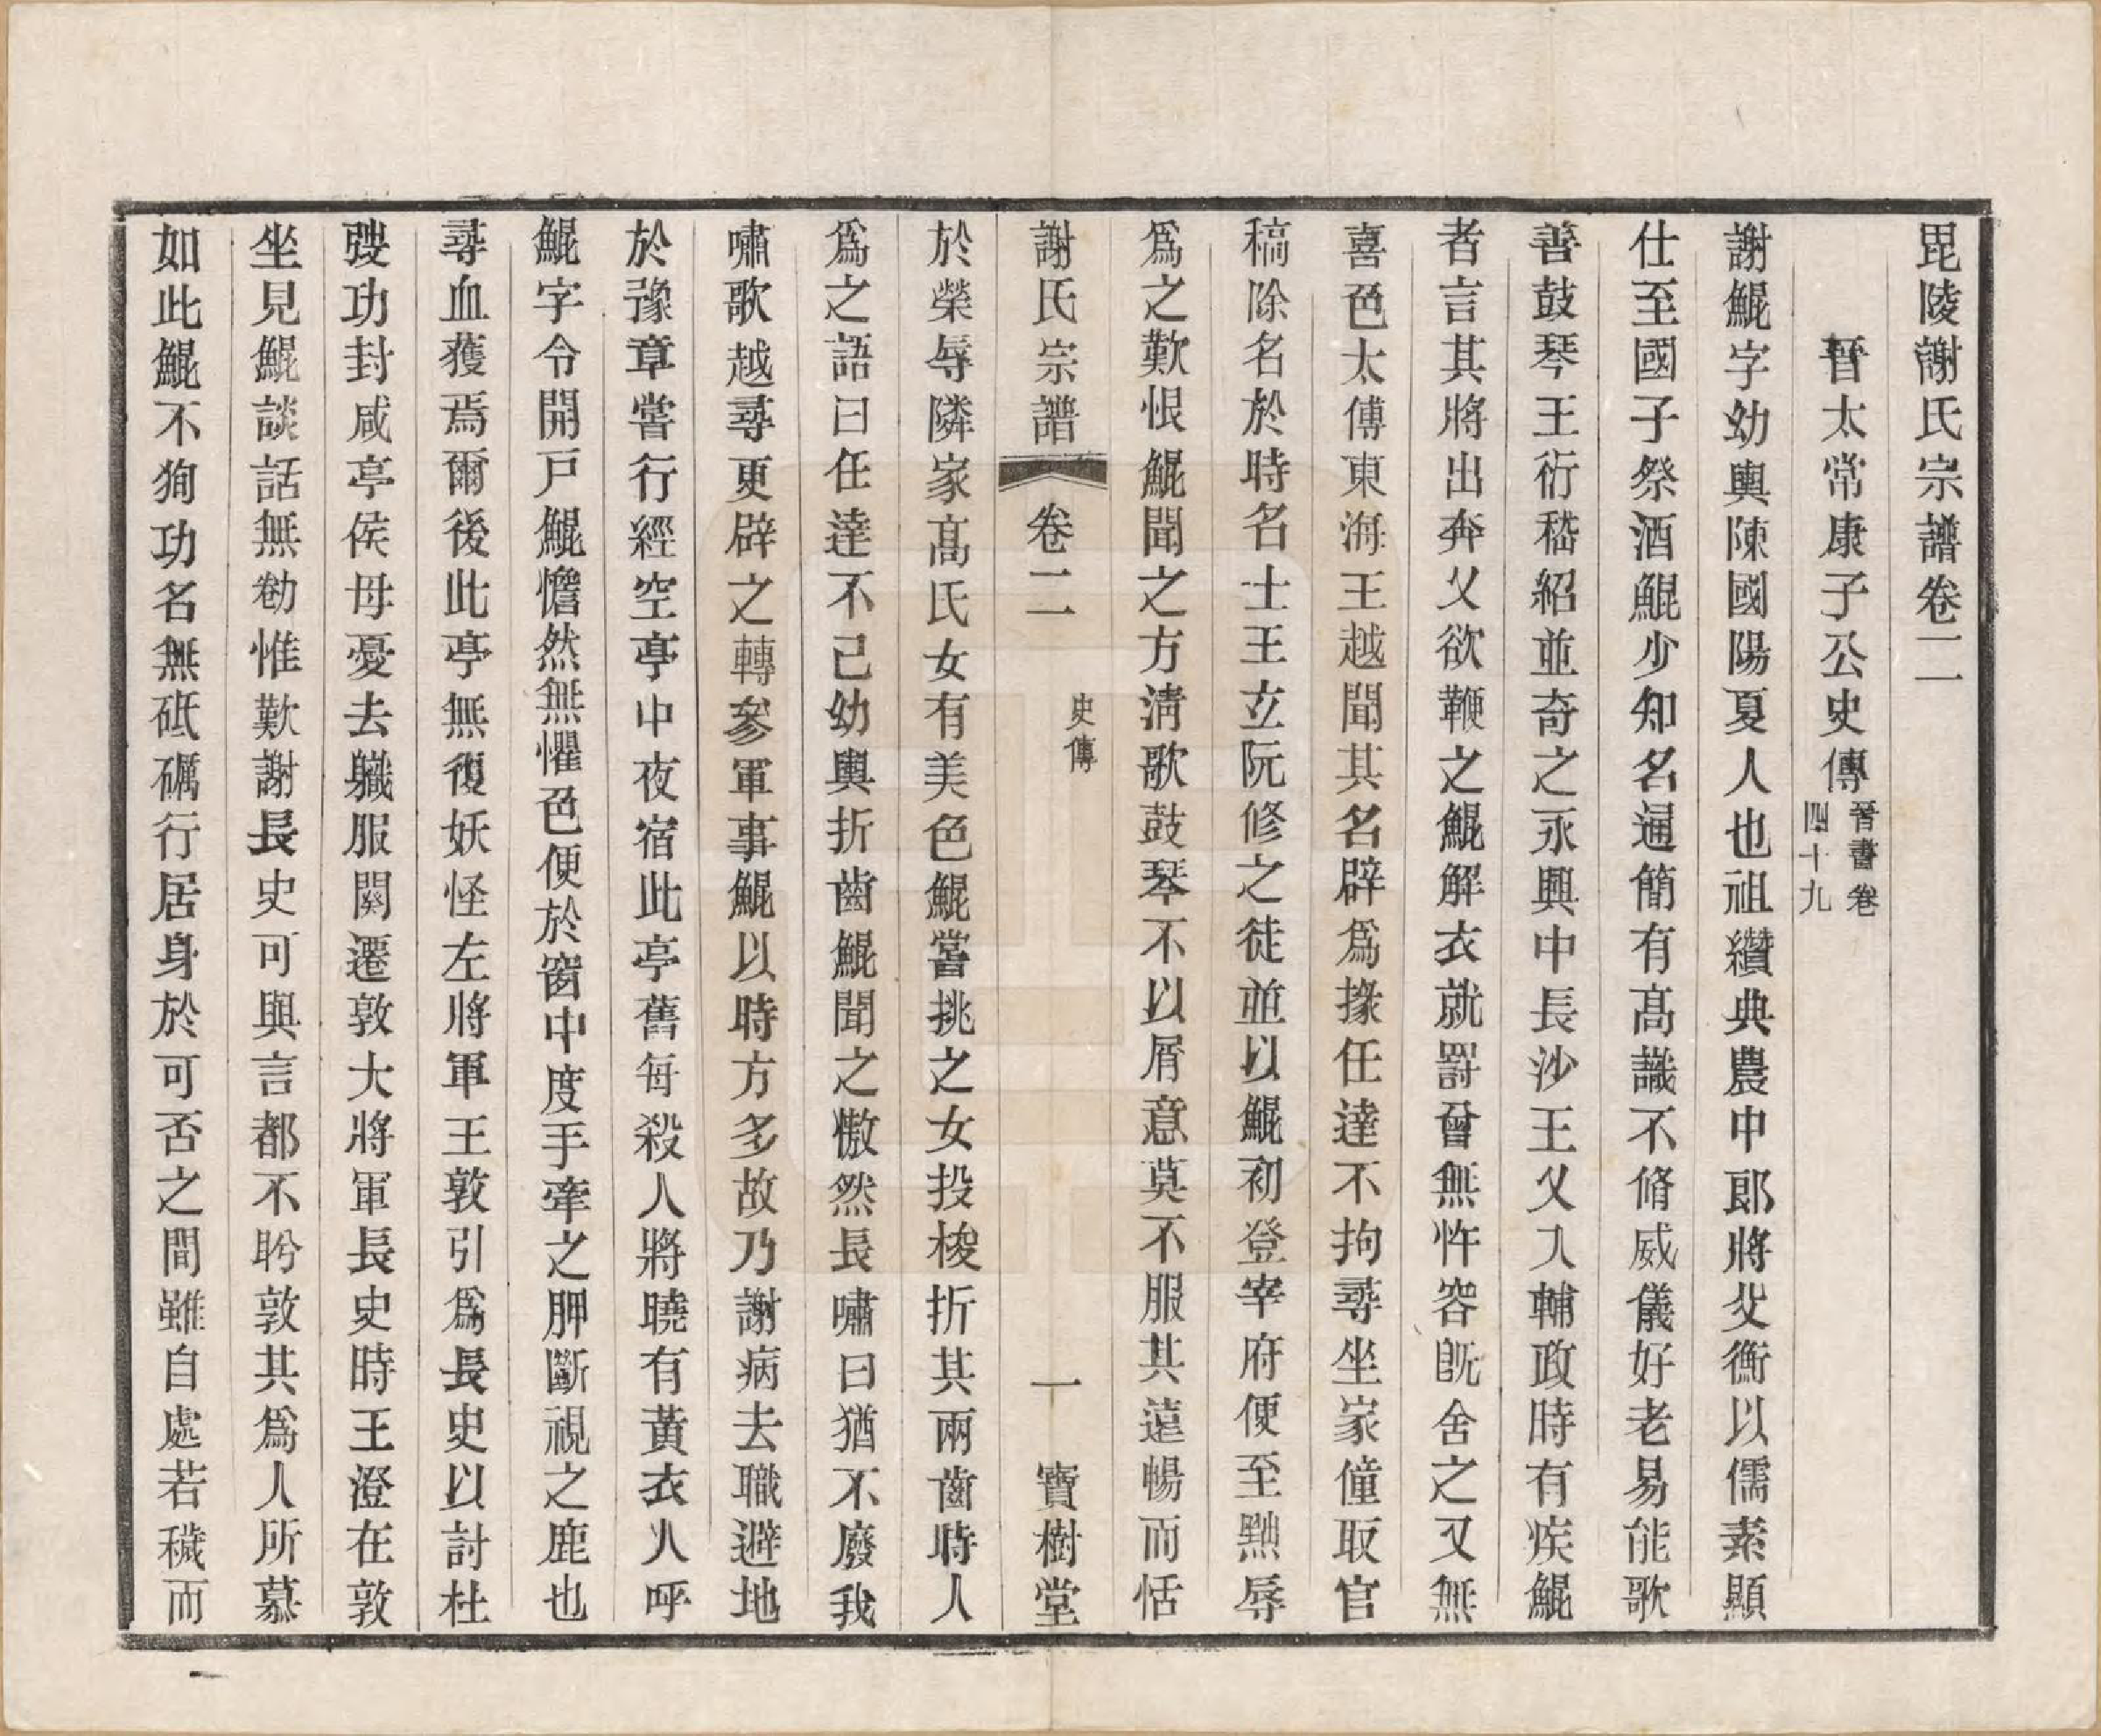 毘陵謝氏宗譜卷二
晉太常康子公史傳
晉書卷
四十九
謝鯤字幼輿陳國陽夏人也祖纘典農中郎將父衡以儒素顯
仕至國子祭酒鯤少知名通簡有高識不脩威儀好老易能歌
善鼓琴王衍嵇紹並奇之永興中長沙王乂入輔政時有疾鯤
者言其將出奔乂欲鞭之鯤解衣就罰曾無忤容旣舍之又無
喜色太傅東海王越聞其名辟爲掾任達不拘尋坐家僮取官
稿除名於時名士王立阮修之徒並以鯤初登宰府便至黜辱
爲之歎恨鯤聞之方淸歌鼓琴不以屑意莫不服其遠暢而恬
謝氏宗譜
卷二
史傳
一
寶樹堂
於榮辱隣家高氏女有美色鯤嘗挑之女投梭折其兩齒時人
爲之語曰任達不已幼輿折齒鯤聞之憿然長嘯曰猶不廢我
嘯歌越尋更辟之轉參軍事鯤以時方多故乃謝病去職避地
於豫章嘗行經空亭中夜宿此亭舊每殺人將曉有黃衣人呼
鯤字令開戸鯤憺然無懼色便於窗中度手牽之胛斷視之鹿也
尋血獲焉爾後此亭無復妖怪左將軍王敦引爲長史以討杜
弢功封咸亭侯母憂去職服闋遷敦大將軍長史時王澄在敦
坐見鯤談話無勌惟歎謝長史可與言都不眄敦其爲人所慕
如此鯤不狥功名無砥礪行居身於可否之間雖自處若穢而